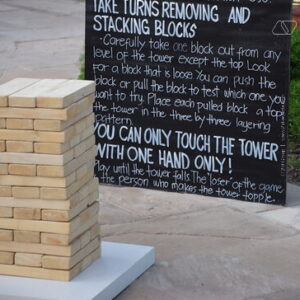 TAKE TURNS REMOVING AND
STACKING BLOCKS
-Carefully take one block out from any
level of the tower except the top. Look
for a block that is loose. You can push the
block or pull the block to test which one you
want to try. Place each pulled block a top
the tower in the three by three layering
pattern.
YOU CAN ONLY TOUCH THE TOWER
WITH ONE HAND ONLY!
Play until the tower falls. The "loser" of the game
is the person who makes the tower topple.